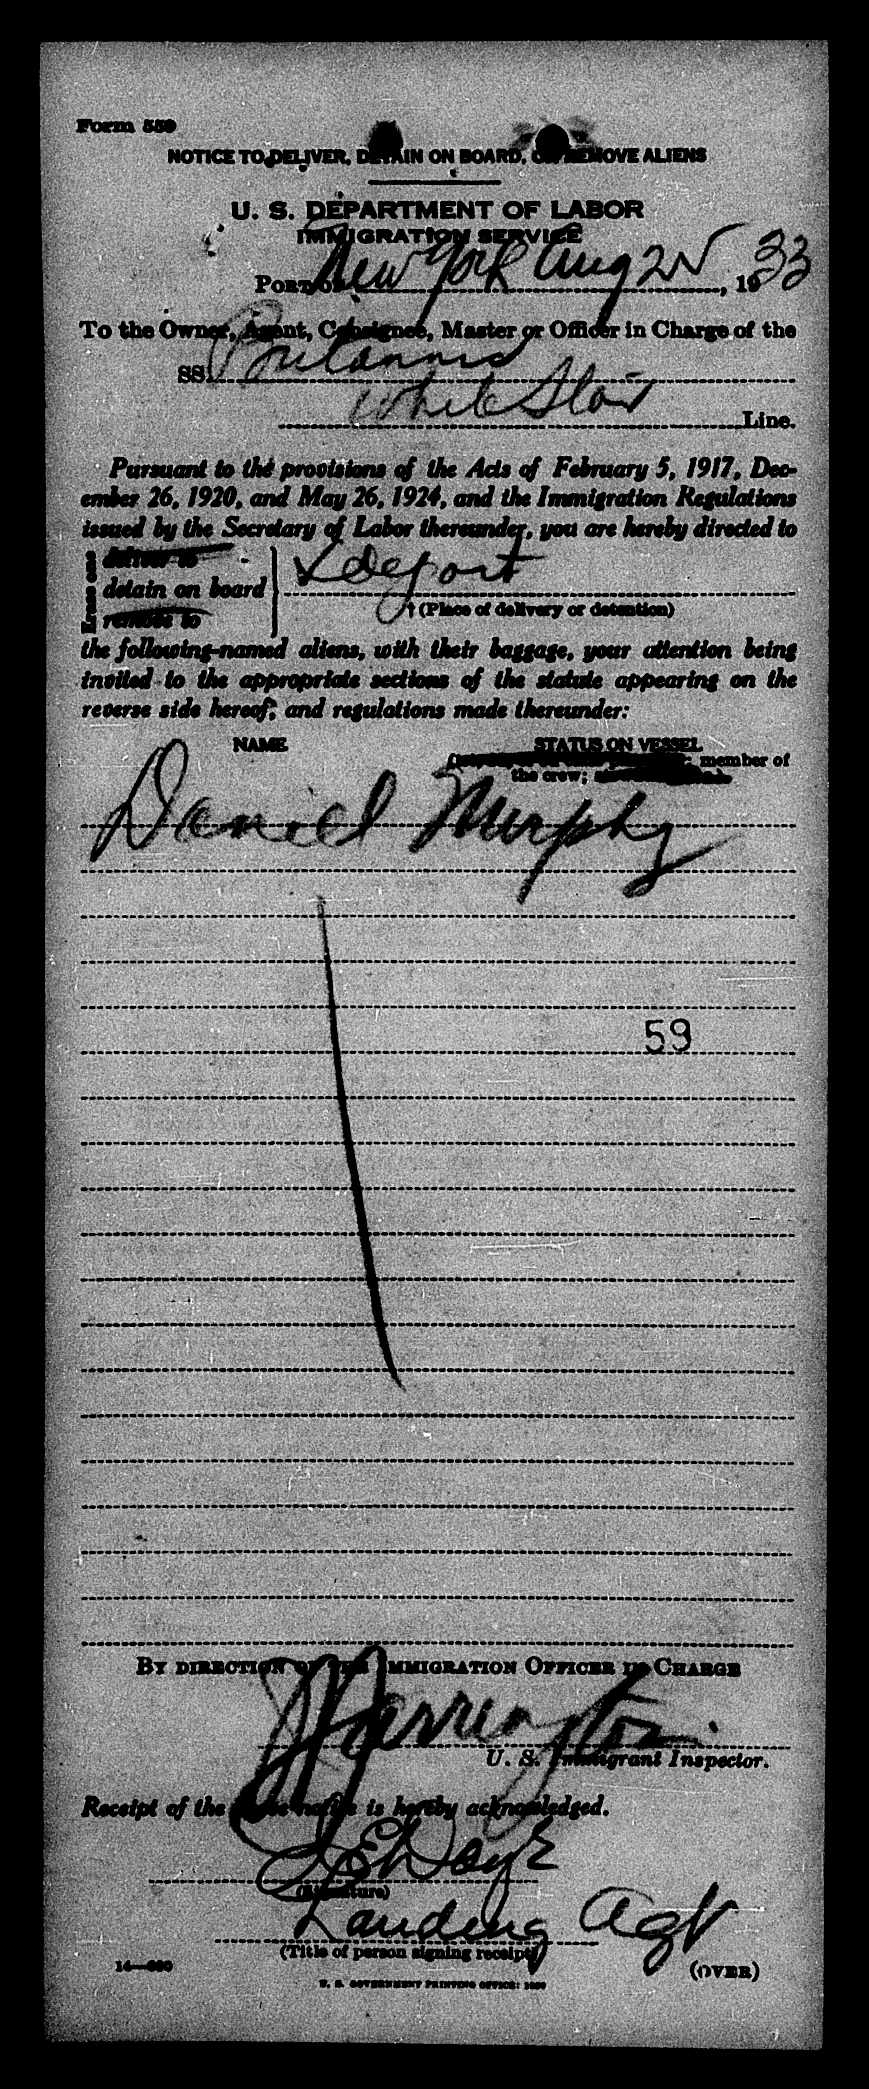 Form 559
NOTICE TO DELIVER, DETAIN ON BOARD, OR REMOVE ALIENS
U. S. DEPARTMENT OF LABOR
IMMIGRATION SERVICE
PORT OF New York Aug 2, 1933
To the Owner, Agent, Consignee, Master or Officer in Charge of the
SS. Britannic
White Star Line.
Pursuant to the provisions of the Acts of February 5, 1917, Dec-
ember 26, 1920, and May 26, 1924, and the Immigration Regulations
issued by the Secretary of Labor thereunder, you are hereby directed to
Erase one
deliver to
detain on board
remove to
& deport
† (Place of delivery or detention)
the following-named aliens, with their baggage, your attention being
invited to the appropriate sections of the statute appearing on the
reverse side hereof; and regulations made thereunder:
NAME STATUS ON VESSEL
member of
the crew;
Daniel Murphy
59
BY DIRECTION OF THE IMMIGRATION OFFICER IN CHARGE
U. S. Immigrant Inspector.
Receipt of the above notice is hereby acknowledged.
Doyle
(Signature)
Landing Agt
(Title of person signing receipt)
(OVER)
U. S. GOVERNMENT PRINTING OFFICE: